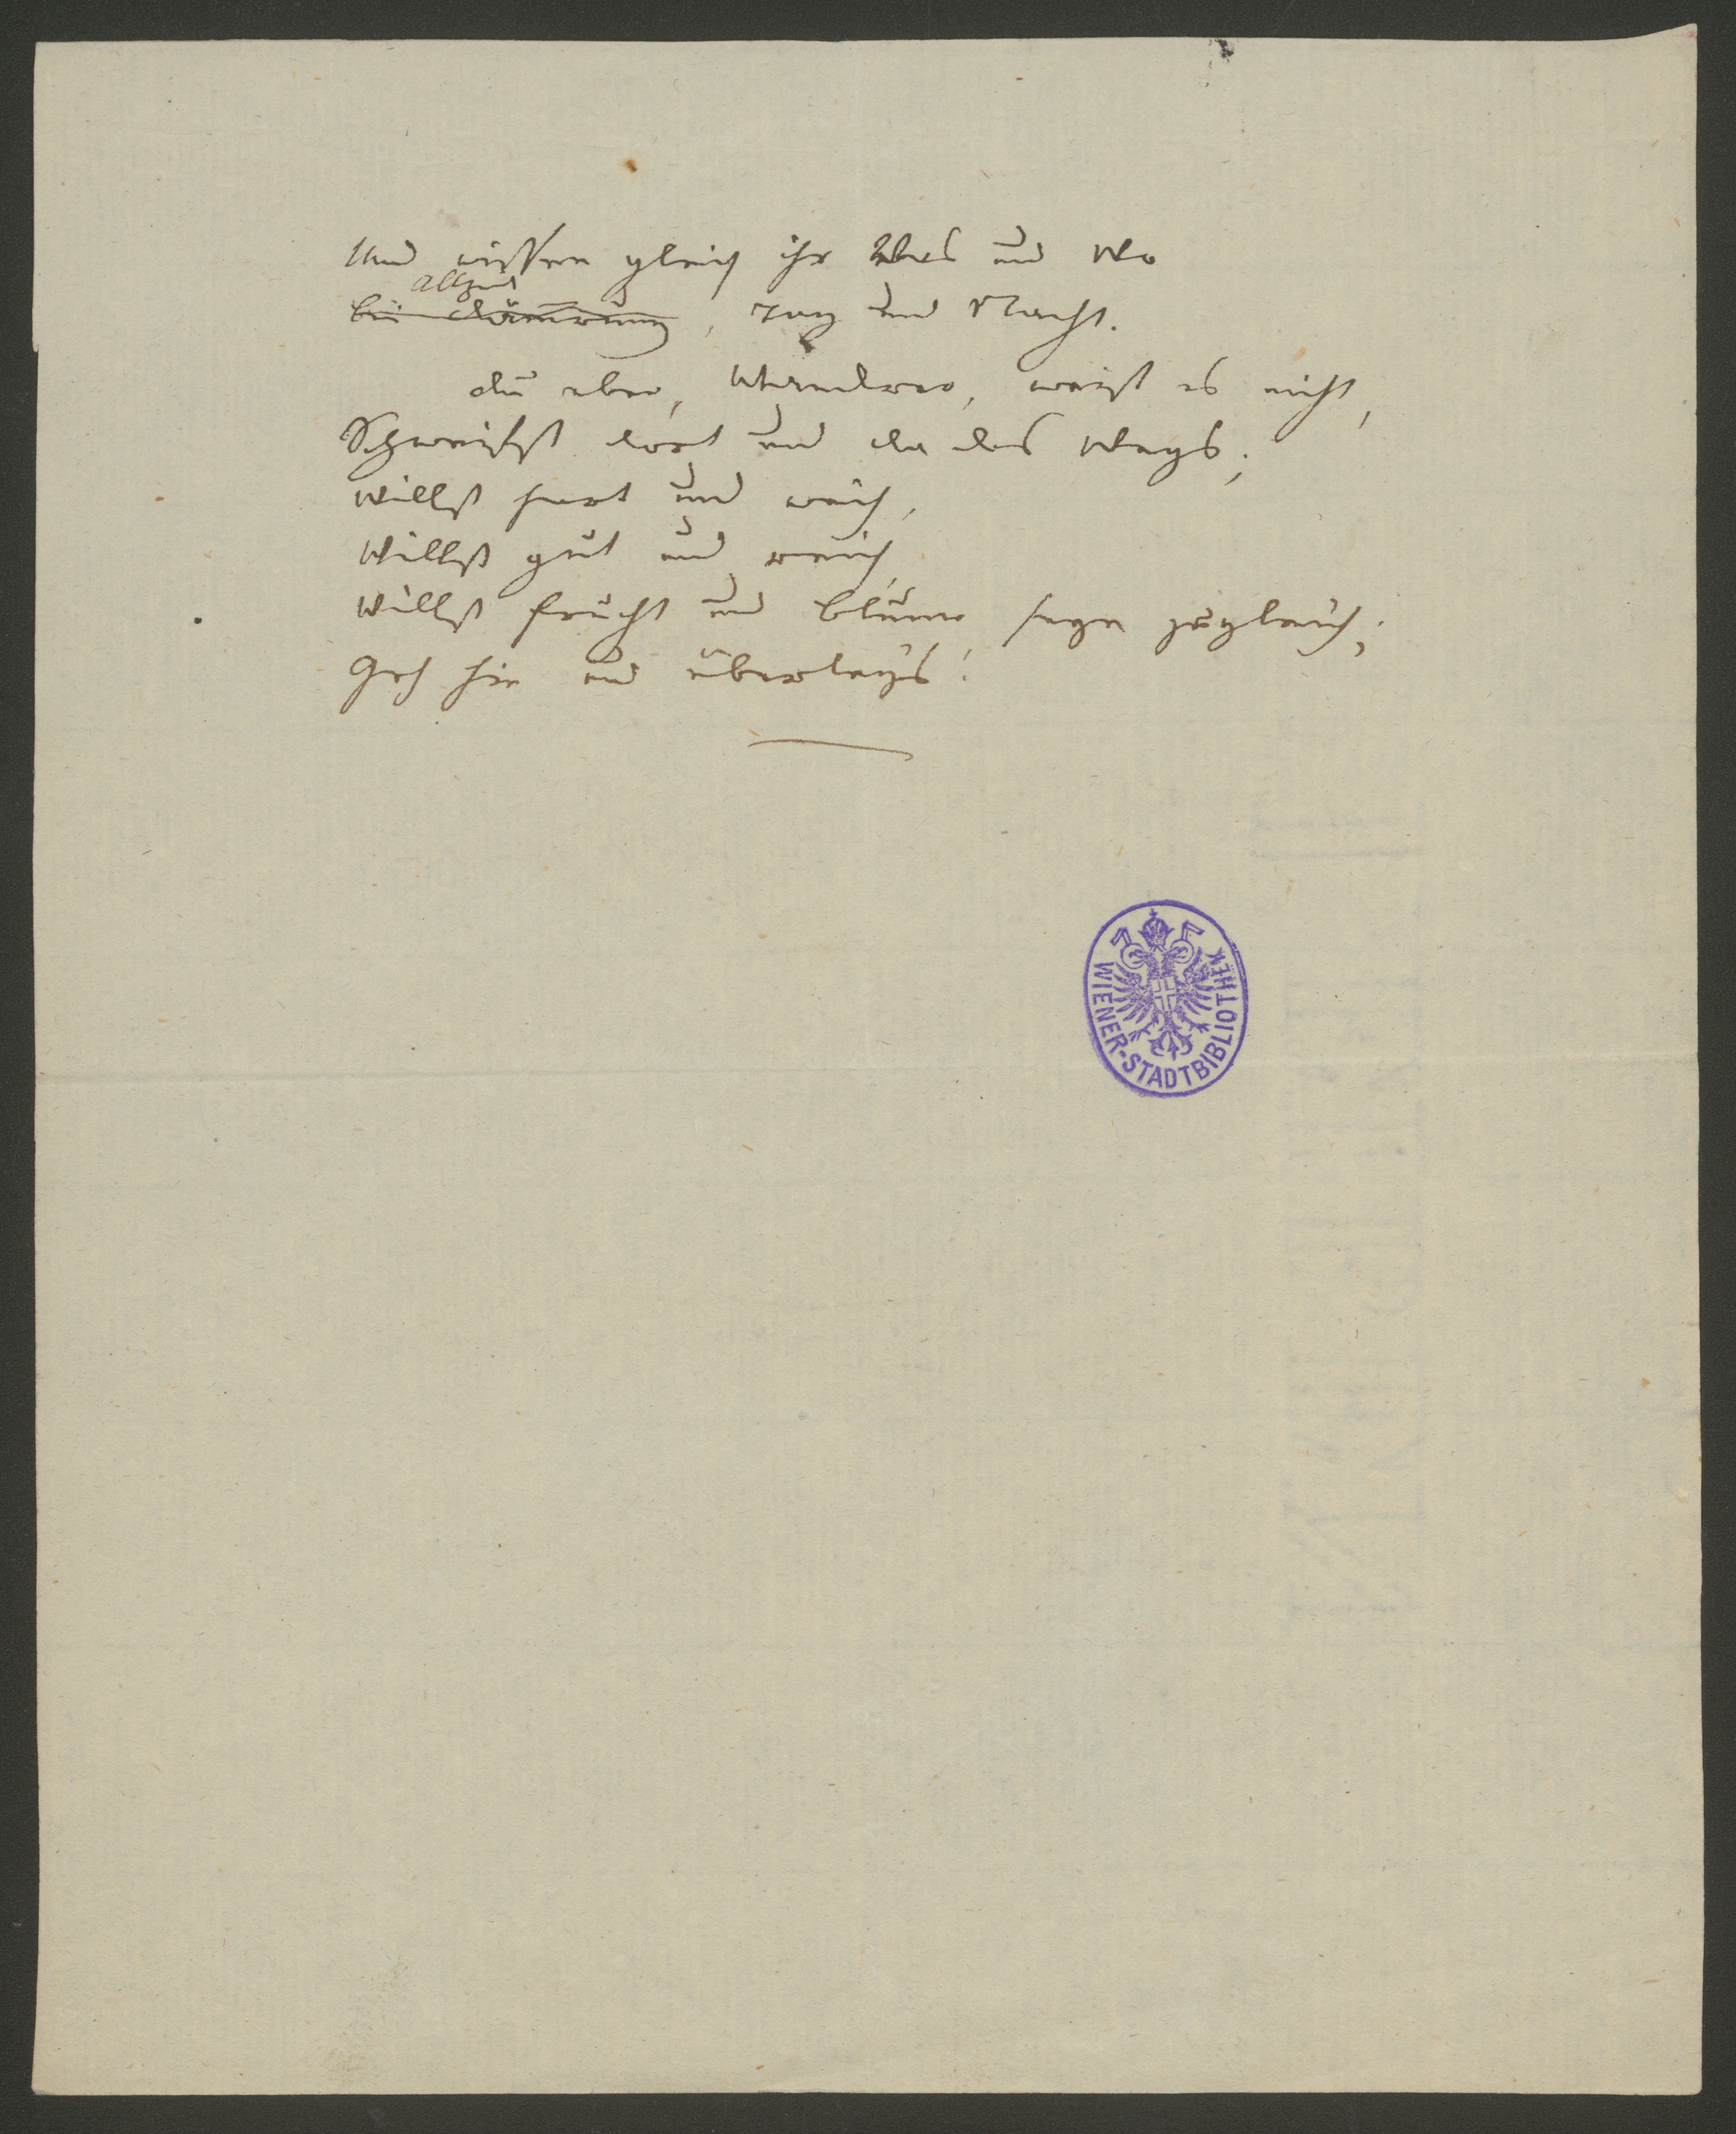 Und wissen gleich ihr Was und Wo
allzeit
bei Dämmrung, Tag und Nacht.
Du aber, Wandrer, weißt es nicht,
Schweifst dort und da des Wegs;
Willst hart und weich,
Willst gut und reich,
Willst Frucht und Blume seyn zugleich;
Geh hin und überlegs!
WIENER-STADTBIBLIOTHEK